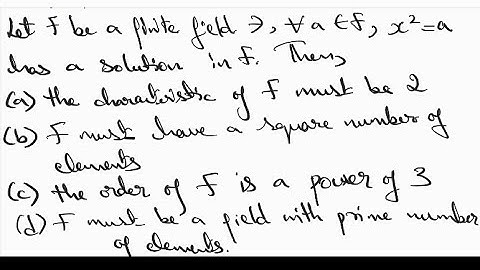 Let F be a finite field ∋, ∀ a ∈ F, x² = a
has a solution in F. Then,
(a) the characteristic of F must be 2
(b) F must have a square number of
elements
(c) the order of F is a power of 3
(d) F must be a field with prime number
of elements.